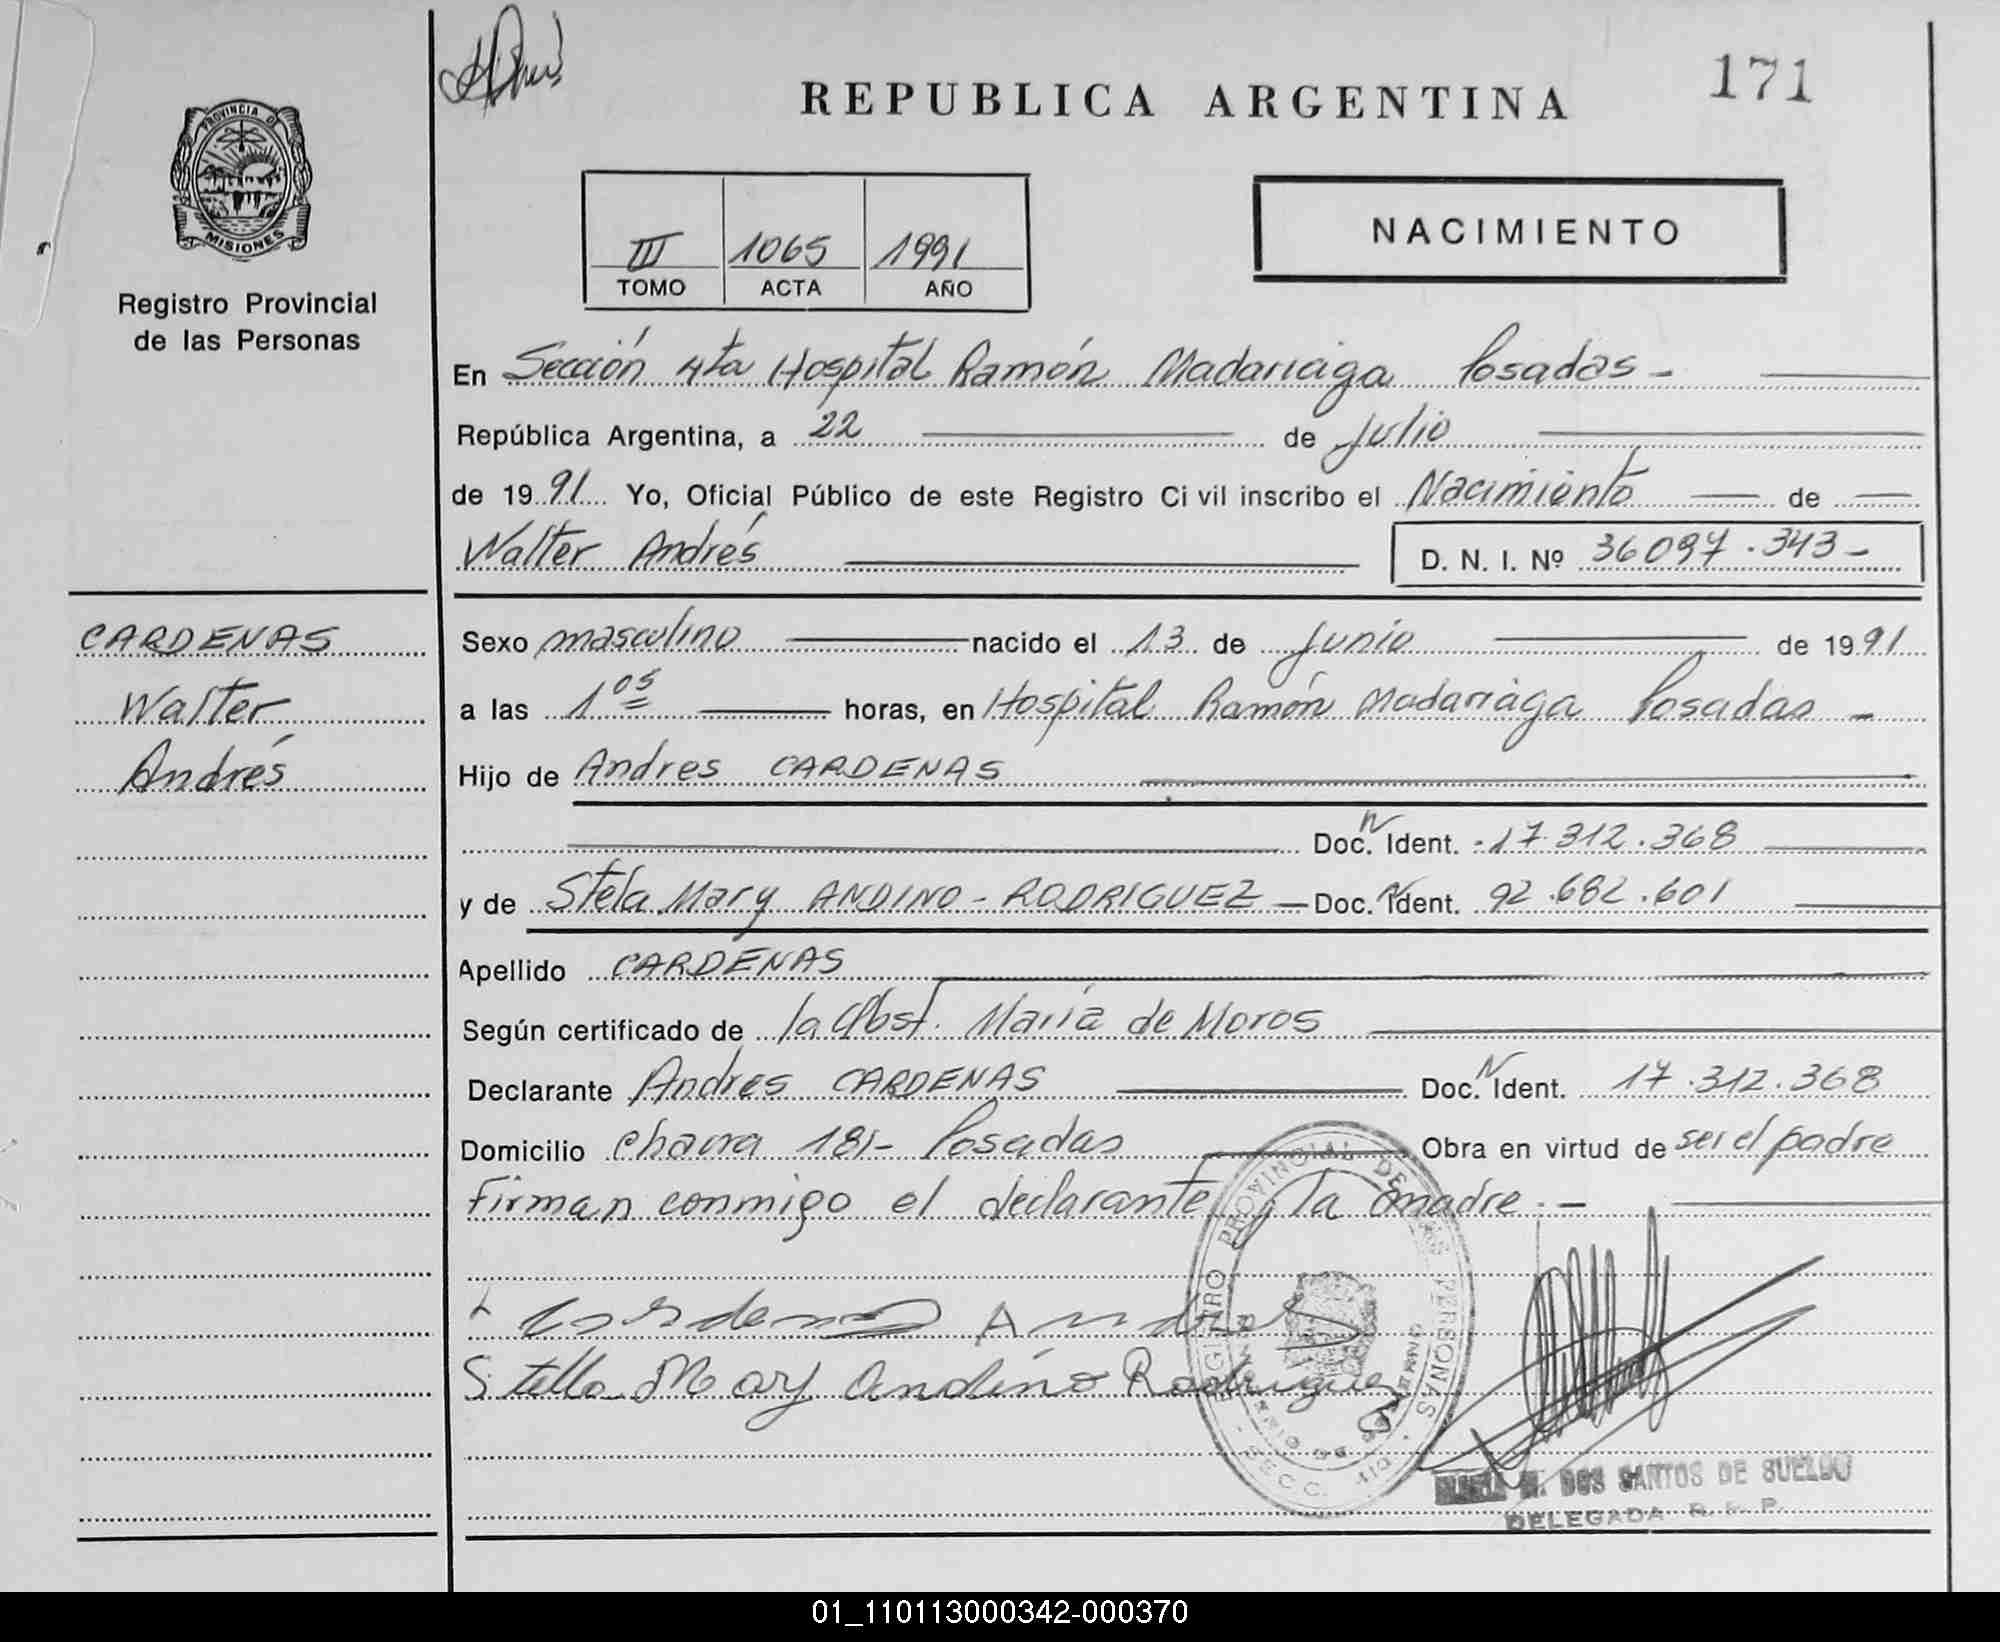 171
REPUBLICA ARGENTINA
PROVINCIA D
MISIONES
Registro Provincial
de las Personas
III 1065 1991
TOMO ACTA AÑO
NACIMIENTO
En Sección 4ta Hospital Ramón Madariaga Posadas -
República Argentina, a 22 de Julio
de 1991 Yo, Oficial Público de este Registro Civil inscribo el Nacimiento de
Walter Andrés D. N. I. Nº 36097.343-
CARDENAS
Walter
Andrés
Sexo masculino nacido el 13 de Junio de 1991
a las 1 05 horas, en Hospital Ramón Madariaga Posadas -
Hijo de Andres CARDENAS
Doc. N Ident. 17.312.368
y de Stela Mary ANDINO - RODRIGUEZ - Doc. N Ident. 92.682.601
Apellido CARDENAS
Según certificado de la Obst. María de Moros
Declarante Andres CARDENAS Doc. N Ident. 17.312.368
Domicilio chacra 181- Posadas Obra en virtud de ser el padre
Firman conmigo el declarante y la madre.-
Cardenas Andres
Stella Mary Andino Rodriguez
REGISTRO PROVINCIAL DE LAS PERSONAS
SECC. 4ta
DOS SANTOS DE SUELDO
DELEGADA R. P. P.
01_110113000342-000370